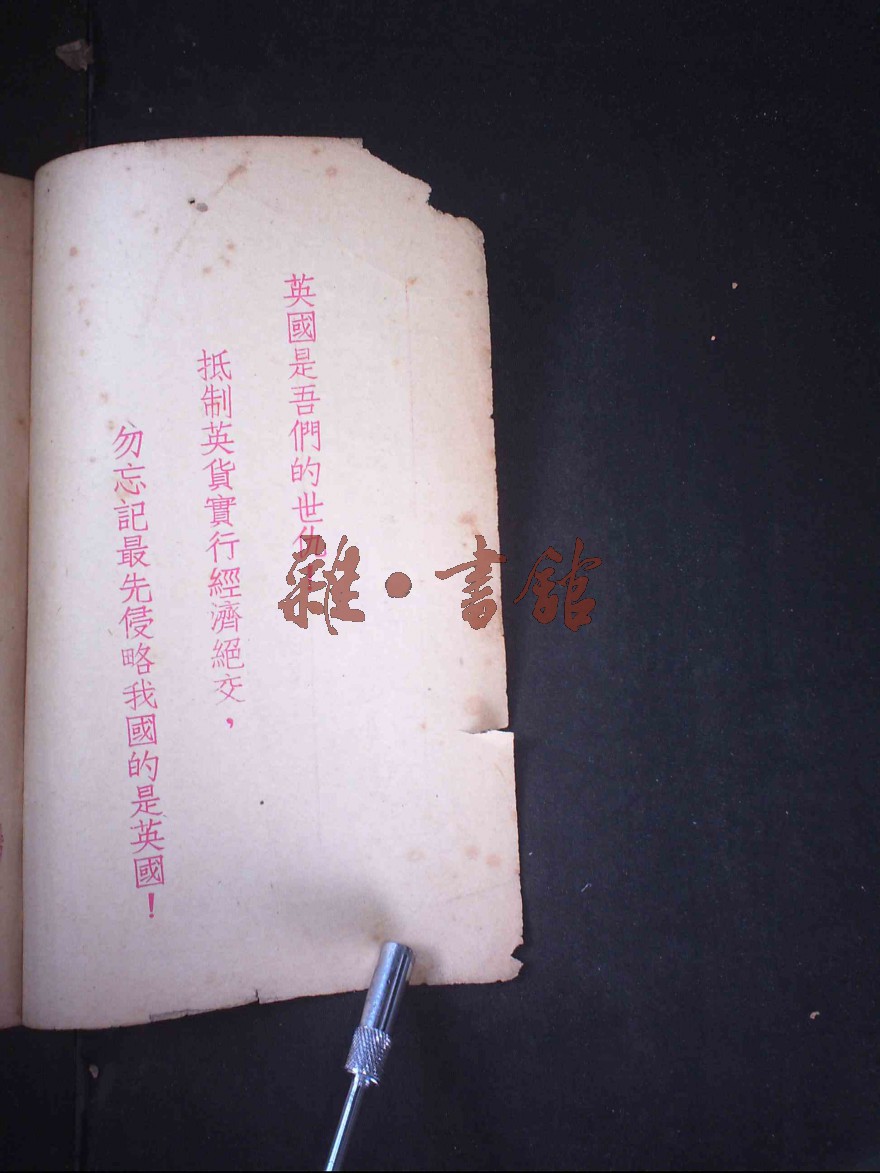 英國是吾們的世仇!
抵制英貨實行經濟絕交，
勿忘記最先侵略我國的是英國！
雜·書館